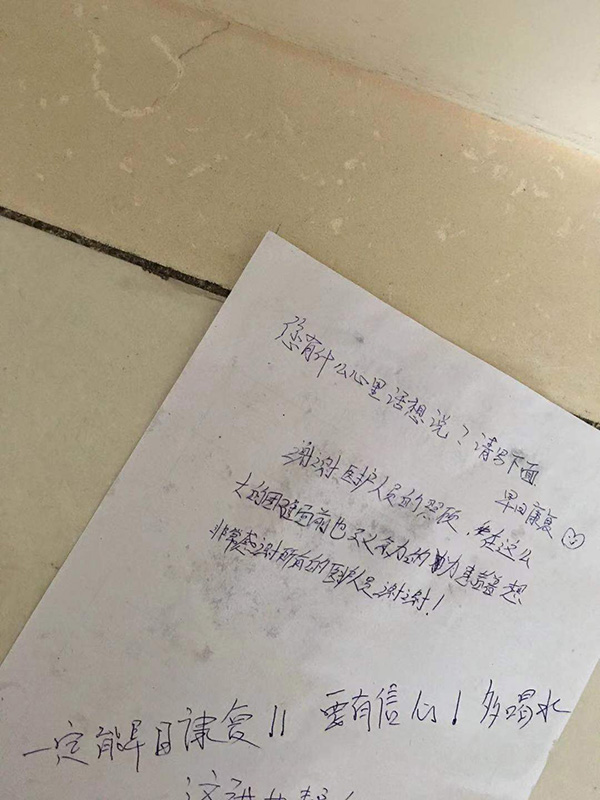 您有什么心里话想说？请写下面
早日康复
谢谢医护人员的照顾，在这么
大的困难面前也又全力的为患着想
非常感谢所有的医护人员谢谢！
一定能早日康复!! 要有信心！多喝水